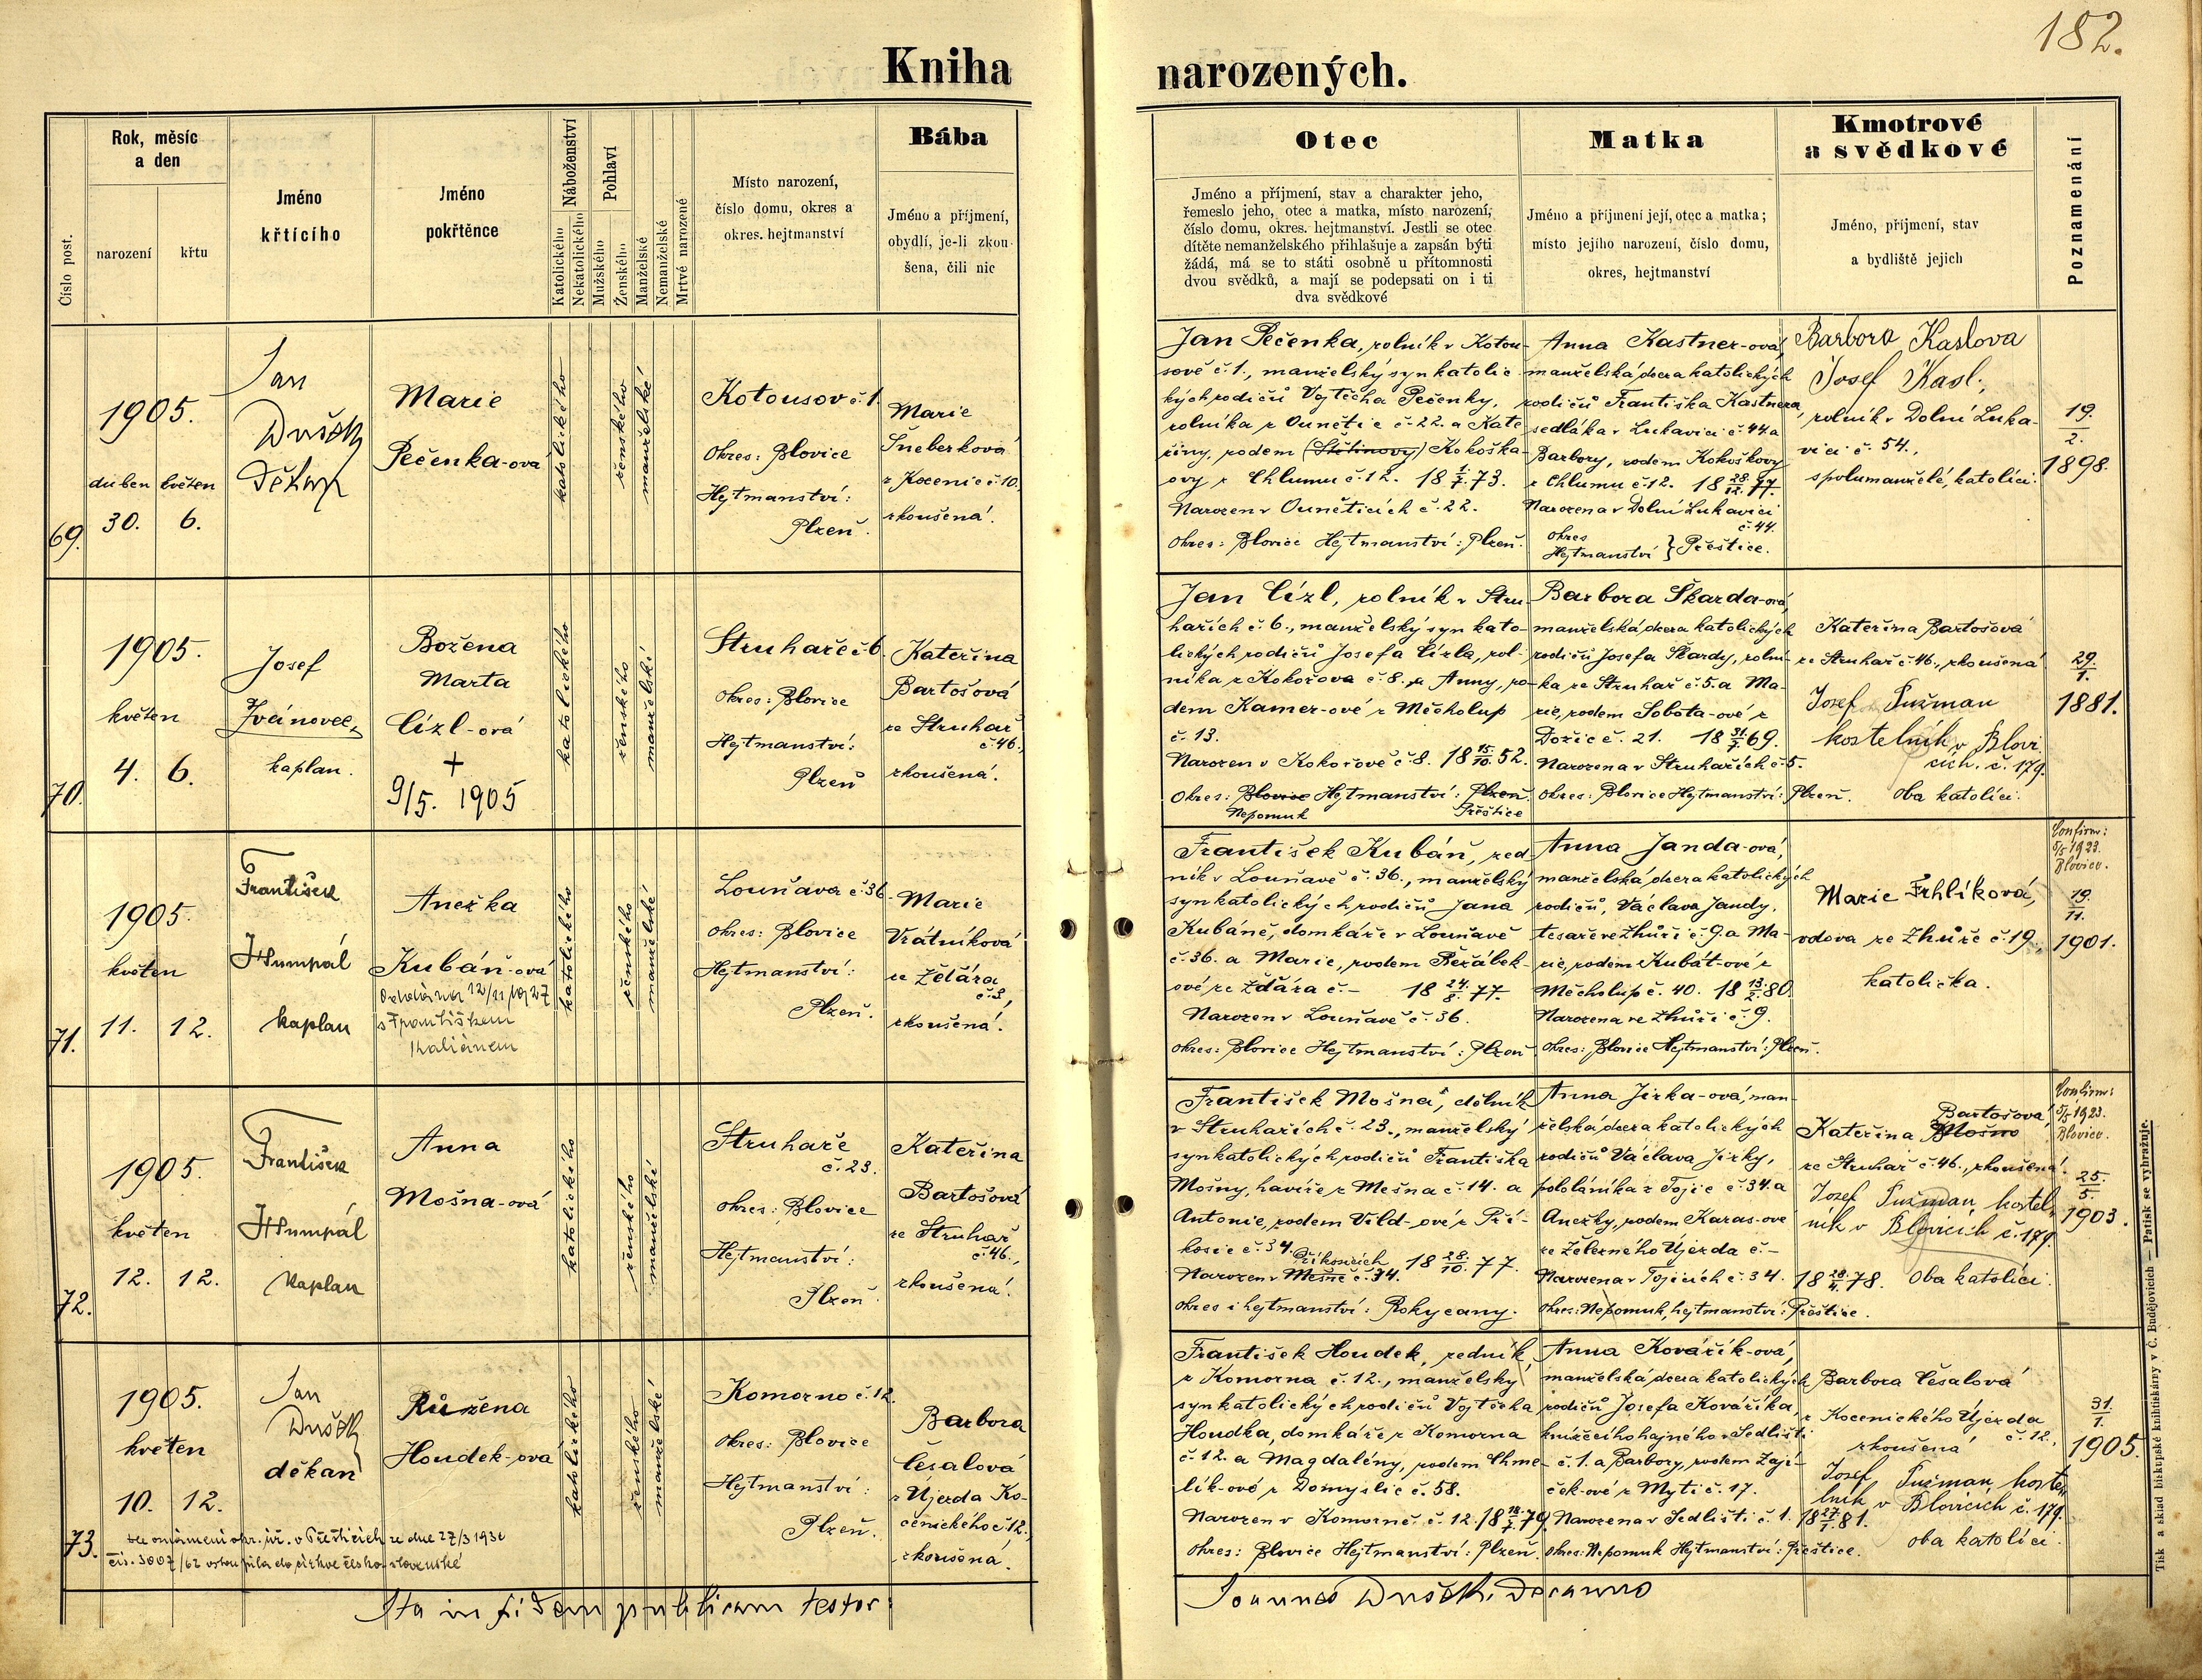 182.
Kniha narozených.
Číslo post.
Rok, měsíc
a den
narození
křtu
Jméno
křtícího
Jméno
pokřtěnce
Náboženství
Katolického
Nekatolického
Pohlaví
Mužského
Ženského
Manželské
Nemanželské
Mrtvé narozené
Místo narození,
číslo domu, okres a
okres. hejtmanství
Bába
Jméno a příjmení,
obydlí, je-li zkou-
šena, čili nic
Otec
Jméno a příjmení, stav a charakter jeho,
řemeslo jeho, otec a matka, místo narození,
číslo domu, okres. hejtmanství. Jestli se otec
dítěte nemanželského přihlašuje a zapsán býti
žádá, má se to státi osobně u přítomnosti
dvou svědků, a mají se podepsati on i ti
dva svědkové
Matka
Jméno a příjmení její, otec a matka;
místo jejího narození, číslo domu,
okres, hejtmanství
Kmotrové
a svědkové
Jméno, příjmení, stav
a bydliště jejich
Poznamenání
69.
1905.
duben květen
30. 6.
Jan
Dušek
Děkan
Marie
Pečenka-ová
katolického
ženského
manželské
Kotousov č. 1.
Okres: Blovice
Hejtmanství:
Plzeň.
Marie
Šneberková
z Kocenic č 10.
zkoušená.
Jan Pečenka, rolník v Kotou-
sově č. 1., manželský syn katolic-
kých rodičů Vojtěcha Pečenky,
rolníka z Ounětic č. 22. a Kate
řiny, rodem Kokoška-
ovy z Chlumu č. 12. 18 1/7. 73.
Narozen v Ouněticích č. 22.
Okres: Blovice Hejtmanství: Plzeň.
Anna Kastner-ová,
manželská dcera katolických
rodičů Františka Kastnera,
sedláka v Lukavici č. 44. a
Barbory, rodem Kokoškovy
z Chlumu č. 12. 18 28/12. 77.
Narozena v Dolní Lukavici
č. 44.
Okres
Hejtmanství } Přeštice.
Barbora Kaslova
Josef Kasl,
rolník v Dolní Luka-
vici č. 54.,
spolumanželé, katolíci.
19.
2.
1898.
70.
1905.
květen
4. 6.
Josef
Ivánovec,
kaplan.
Božena
Marta
Cízl-ová
+
9/5. 1905
katolického
ženského
manželské
Struhaře č. 6.
Okres: Blovice
Hejtmanství:
Plzeň
Kateřina
Bartošová
ze Struhař
č. 46.,
zkoušená.
Jan Cízl, rolník v Stru-
hařích č. 6., manželský syn kato-
lických rodičů Josefa Cízla, rol-
níka z Kokořova č. 8. a Anny, ro-
dem Kamer-ové z Měcholup
č. 13.
Narozen v Kokořově č. 8. 18 15/10. 52.
Okres: Blovice Hejtmanství: Plzeň.
Nepomuk Přeštice
Barbora Škarda-ová,
manželská dcera katolických
rodičů Josefa Škardy, rolní-
ka ze Struhař č. 5. a Ma-
rie, rodem Sobota-ové z
Dožic č. 21. 18 31/7. 69.
Narozena v Struhařích č. 5.
Okres: Blovice Hejtmanství: Plzeň.
Kateřina Bartošová
ze Struhař č. 46., zkoušená
Josef Pužman
kostelník v Blovi-
cích. č. 179.
Oba katolíci.
29.
1.
1881.
71.
1905.
květen
11. 12.
František
Humpál
kaplan
Anežka
Kubáň-ová
Oddána 12/11 1927
s Františkem
Kaliánem
katolického
ženského
manželské
Louňava č. 36.
Okres: Blovice
Hejtmanství:
Plzeň.
Marie
Vrátníková
ze Ždára
č. 3,
zkoušená.
František Kubáň, zed-
ník v Louňavě č. 36., manželský
syn katolických rodičů Jana
Kubáně, domkáře v Louňavě
č. 36. a Marie, rodem Řežábek-
ové ze Žďára č. - 18 24/8. 77.
Narozen v Louňavě č. 36.
Okres: Blovice Hejtmanství: Plzeň
Anna Janda-ová,
manželská dcera katolických
rodičů, Václava Jandy,
tesaře ve Zhůři č. 9. a Ma-
rie, rodem Kubát-ové z
Měcholup č. 40. 18 13/2. 80.
Narozena ve Zhůři č. 9.
Okres: Blovice Hejtmanství: Plzeň.
Marie Frhlíková,
vdova ze Zhůře č. 19.,
katolička.
Confirm:
5/5 1923.
Blovice.
19.
11.
1901.
72.
1905.
květen
12. 12.
František
Humpál
Kaplan
Anna
Mošna-ová
katolického
ženského
manželské
Struhaře
č. 23.
Okres: Blovice
Hejtmanství:
Plzeň
Kateřina
Bartošová
ze Struhař
č. 46.,
zkoušená.
František Mošna, dělník
v Struhařích č. 23., manželský
syn katolických rodičů Františka
Mošny, havíře z Mešna č. 14. a
Antonie, rodem Vild-ové z Pří-
kosic č. 34. 18 28/10. 77.
Příkosicích
Narozen v Mešně č. 34.
Okres i hejtmanství: Rokycany.
Anna Jirka-ová, man-
želská dcera katolických
rodičů Václava Jirky,
pololáníka z Tojic č. 34. a
Anežky, rodem Karas-ove
ze Železného Újezda č. -
Narozena v Tojicích č. 34. 18 28/4. 78.
Okres: Nepomuk, hejtmanství: Přeštice.
Bartošová,
Kateřina Mošno
ze Struhař č. 46., zkoušená.
Josef Pužman, kostel-
ník v Blovicích č. 179.
Oba katolíci.
Confirm:
5/5 1923.
Blovice.
25.
5.
1903.
73.
1905.
květen
10. 12.
Jan
Dušek
děkan
Růžena
Houdek-ová
katolického
ženského
manželské
Komorno č. 12.
Okres: Blovice
Hejtmanství:
Plzeň.
Barbora
Česalová
z Újezda Ko-
cenického č 12.,
zkoušená.
dle oznámení okr. úř. v Přešticích ze dne 27/3 1930
čís. 3007/62 vstoupila do církve česko slovenské
František Houdek, zedník
z Komorna č. 12., manželský
syn katolických rodičů Vojtěcha
Houdka, domkáře z Komorna
č. 12. a Magdalény, rodem Chme-
lík-ové z Domyslic č. 58.
Narozen v Komorně č. 12. 18 18/7. 79.
Okres: Blovice Hejtmanství: Plzeň.
Anna Kovářík-ová,
manželská dcera katolických
rodičů Josefa Kováříka,
knížecího hajného v Sedlišti
č. 1. a Barbory, rodem Zají-
ček-ové z Mytí č. 17.
Narozena v Sedlišti č. 1. 18 27/1. 81.
Okres: Nepomuk Hejtmanství: Přeštice.
Barbora Česalová
z Kocenického Újezda
č. 12.,
zkoušená
Josef Pužman, koste-
lník v Blovicích č. 179.
oba katolíci.
31.
1.
1905.
Ita in fidem publicam testor
Joannes Dušek, Decanus
Tisk a sklad biskupské knihtiskárny v Č. Budějovicích — Patisk se vyhražuje.